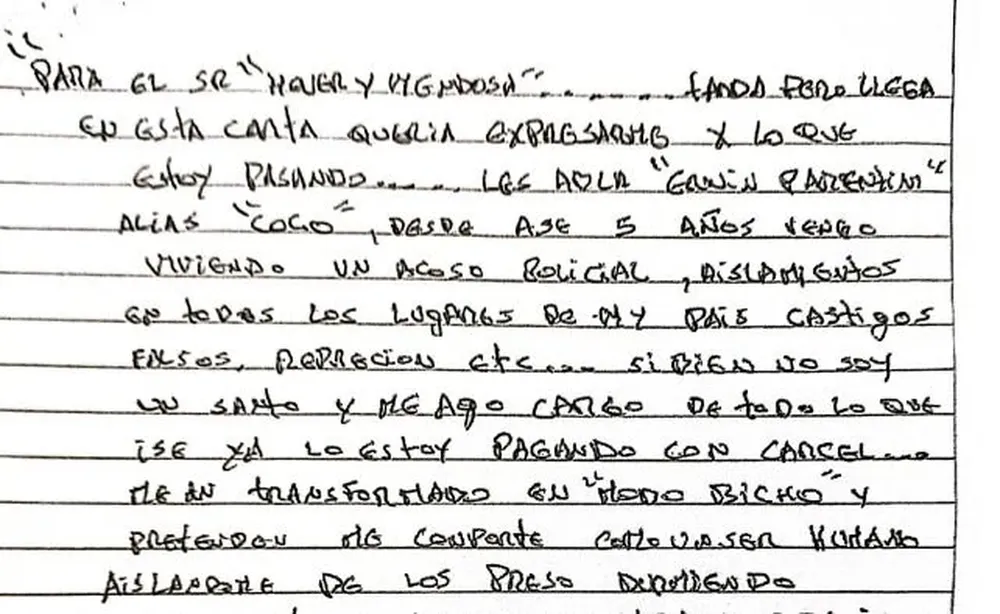 "PARA EL SR "HOUER Y MENDOSA"......... TANDA PERO LLEGA
EN ESTA CARTA QUERIA EXPRESARME X LO QUE
ESTOY PASANDO....... LES AOLA "ERWIN PARENTINI"
ALIAS "COCO", DESDE ASE 5 AÑOS VENGO
VIVIENDO UN ACOSO POLICIAL, AISLAMIENTOS
EN TODOS LOS LUGARES DE MY PAIS CASTIGOS
FALSOS, REPRECION ETC.... SI BIEN NO SOY
UN SANTO Y ME AGO CARGO DE TODO LO QUE
ISE YA LO ESTOY PAGANDO CON CARCEL...
ME AN TRANSFORMADO EN "MONO BICHO" Y
PRETENDEN ME COMPORTE COMO UN SER HUMANO
AISLARME DE LOS PRESO DURMIENDO